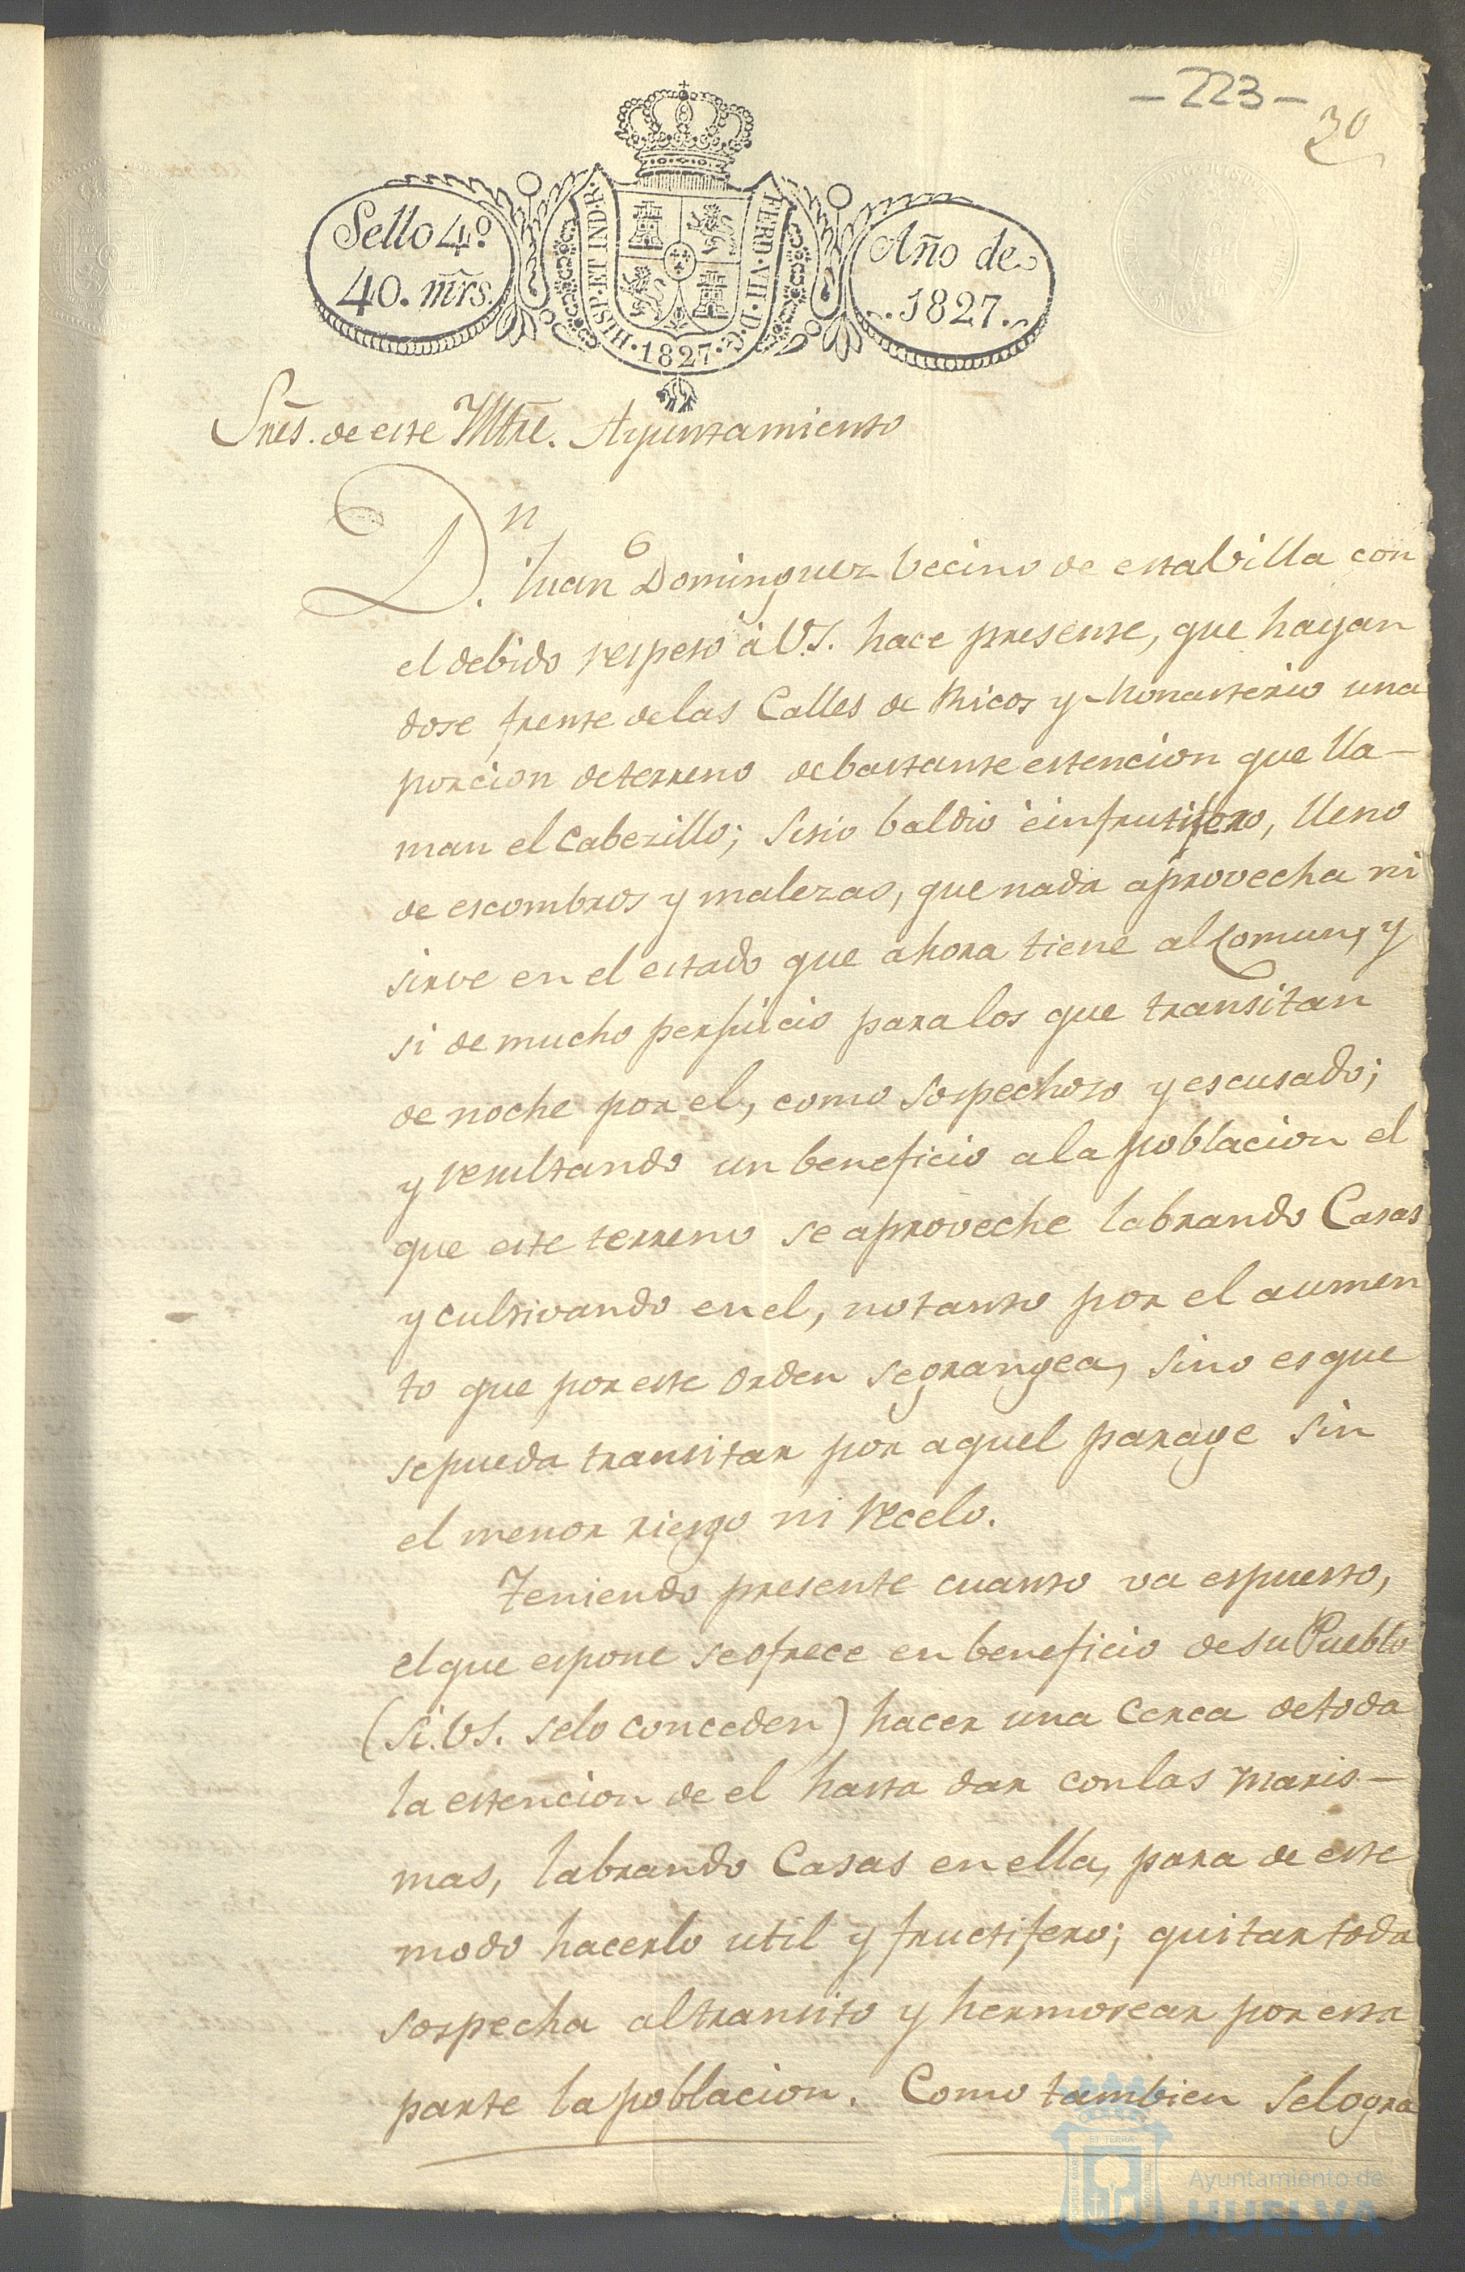 -223-
30
Sello 4º
40. mrs.
HISP. ET IND. R.
FERD. VII. D. G.
·1827·
Año de
1827.
Sres. de este Yltre. Ayuntamiento
D.n Juan Dominguez vecino de esta Villa con
el debido respeto à V.S. hace presente, que hayan
dose frente de las Calles de Ricos y Monasterio una
porcion de terreno de bastante estencion que lla-
man el Cabezillo; sitio baldio è infrutifero, lleno
de escombros y malezas, que nada aprovecha ni
sirve en el estado que ahora tiene al Comun, y
si de mucho perjuicio para los que transitan
de noche por el, como sospechoso y escusado;
y resultando un beneficio a la poblacion el
que este terreno se aproveche labrando Casas
y cultivando en el, no tanto por el aumen
to que por este orden se grangea, sino es que
se pueda transitar por aquel parage sin
el menor riesgo ni recelo.
Teniendo presente cuanto va espuesto,
el que espone se ofrece en beneficio de su Pueblo
(si V.S. se lo conceden) hacer una Cerca de toda
la estencion de el hasta dar con las maris-
mas, labrando Casas en ella, para de este
modo hacerlo util y fructifero; quitar toda
sospecha al transito y hermosear por esta
parte la poblacion. Como tambien se logra
Ayuntamiento de
HUELVA